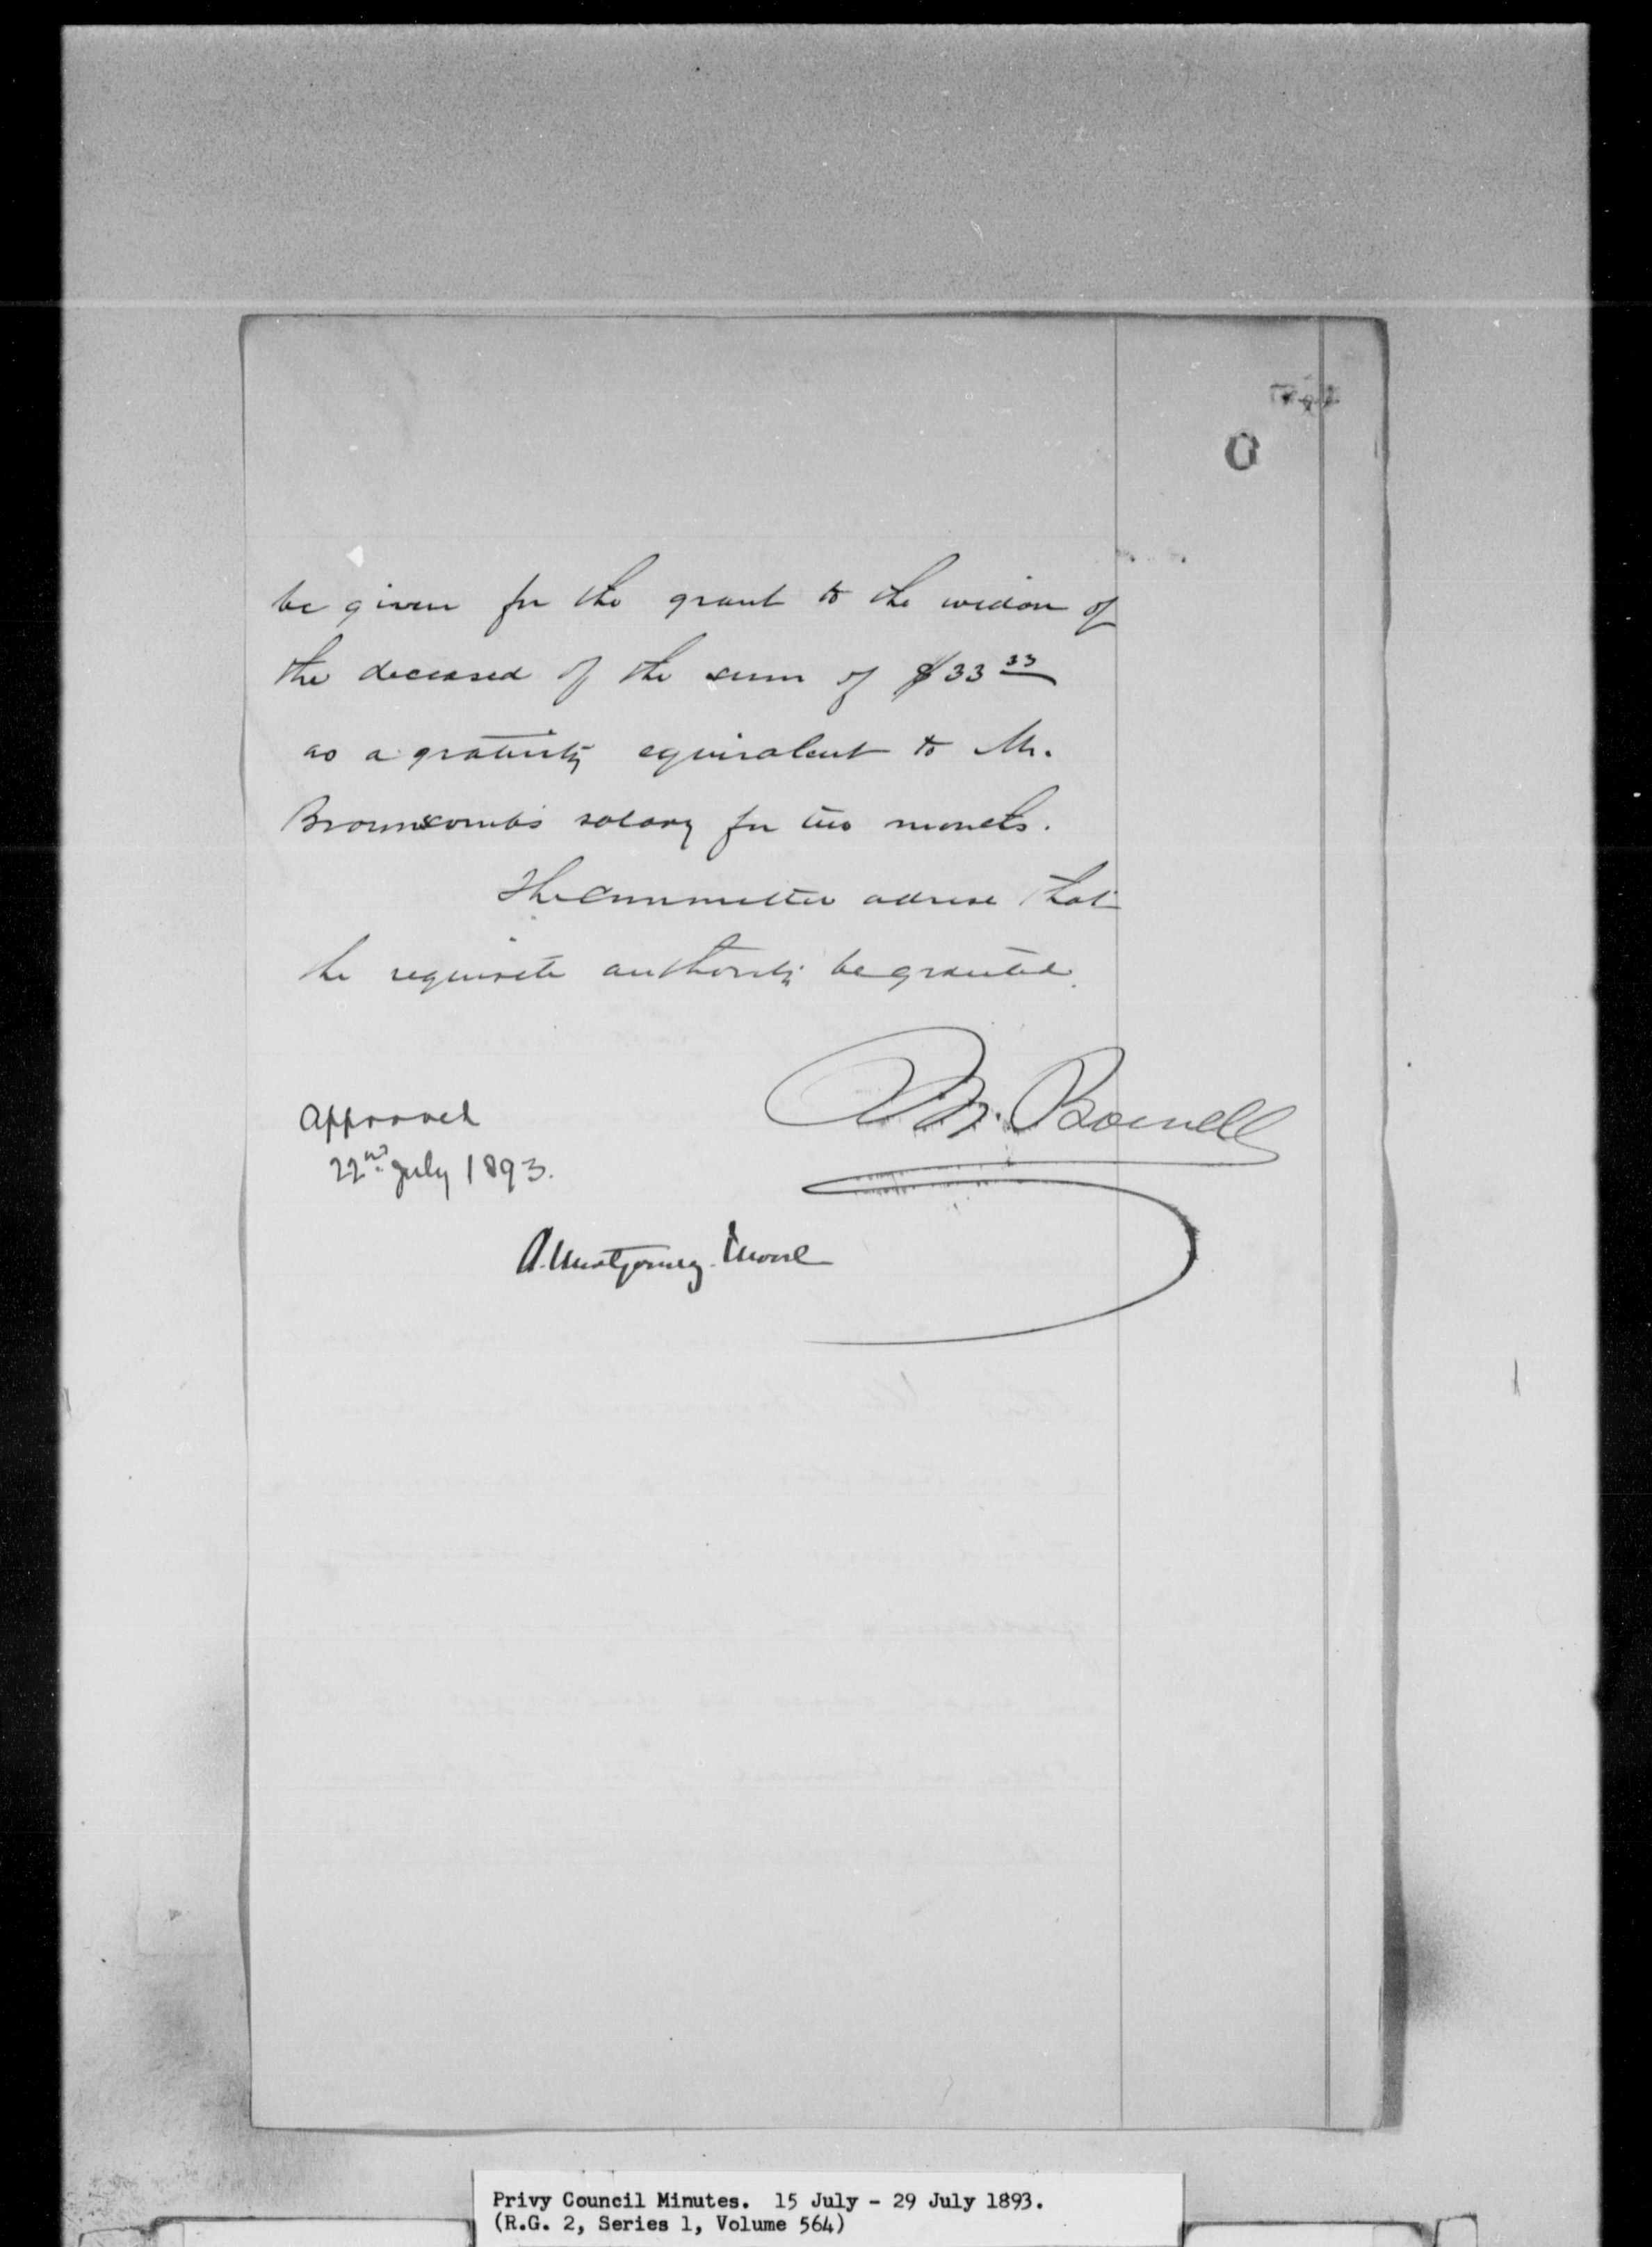 be given for the grant to the widow of
the deceased of the sum of $33 33
as a gratuity equivalent to Mr.
Brownscombs salary for two months.
The Committee advise that
the requisite authority be granted.
M. Bowell
Approved
22nd July 1893.
A. Montgomery Moore
Privy Council Minutes. 15 July - 29 July 1893.
(R.G. 2, Series 1, Volume 564)